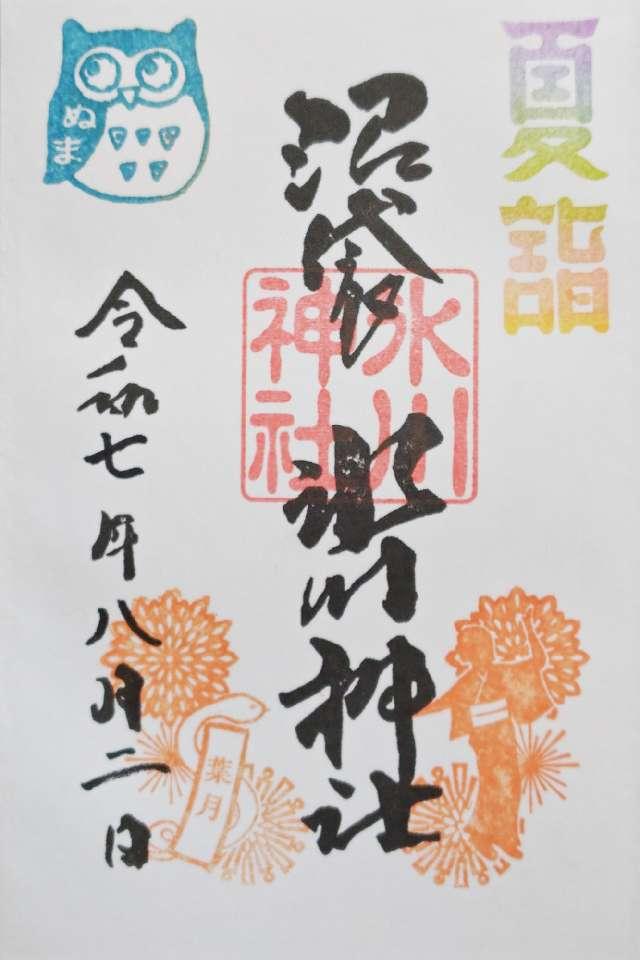 夏詣
沼袋 氷川神社
氷川
神社
ぬま
令和七年八月二日
葉月